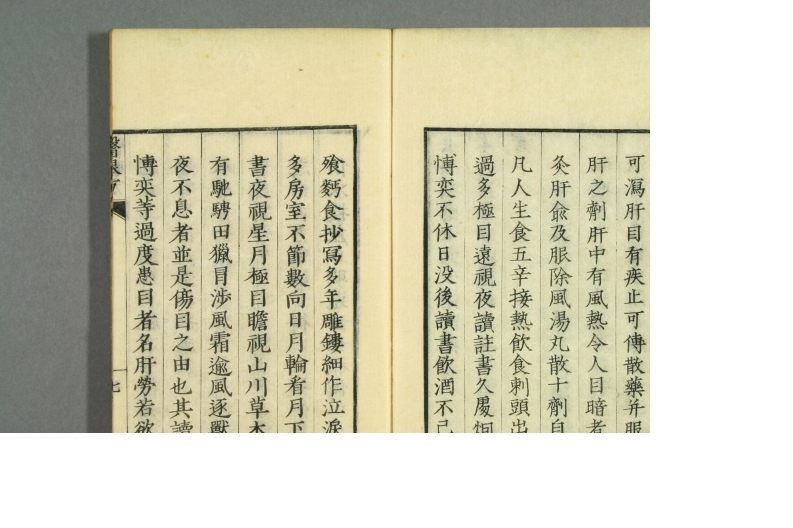 可瀉肝目有疾止可傳散藥并服
肝之劑肝中有風熱令人目暗者
灸肝俞及服除風湯丸散十劑自
凡人生食五辛接熱飲食刺頭出
過多極目遠視夜讀註書久處烟
愽奕不休日没後讀書飲酒不己
飱麪食抄冩多年雕鏤細作泣淚
多房室不節數向日月輪看月下
書夜視星月極目瞻視山川草木
有馳騁田獵冒涉風霜逾風逐獸
夜不息者並是傷目之由也其讀
愽奕等過度患目者名肝勞若欲
七